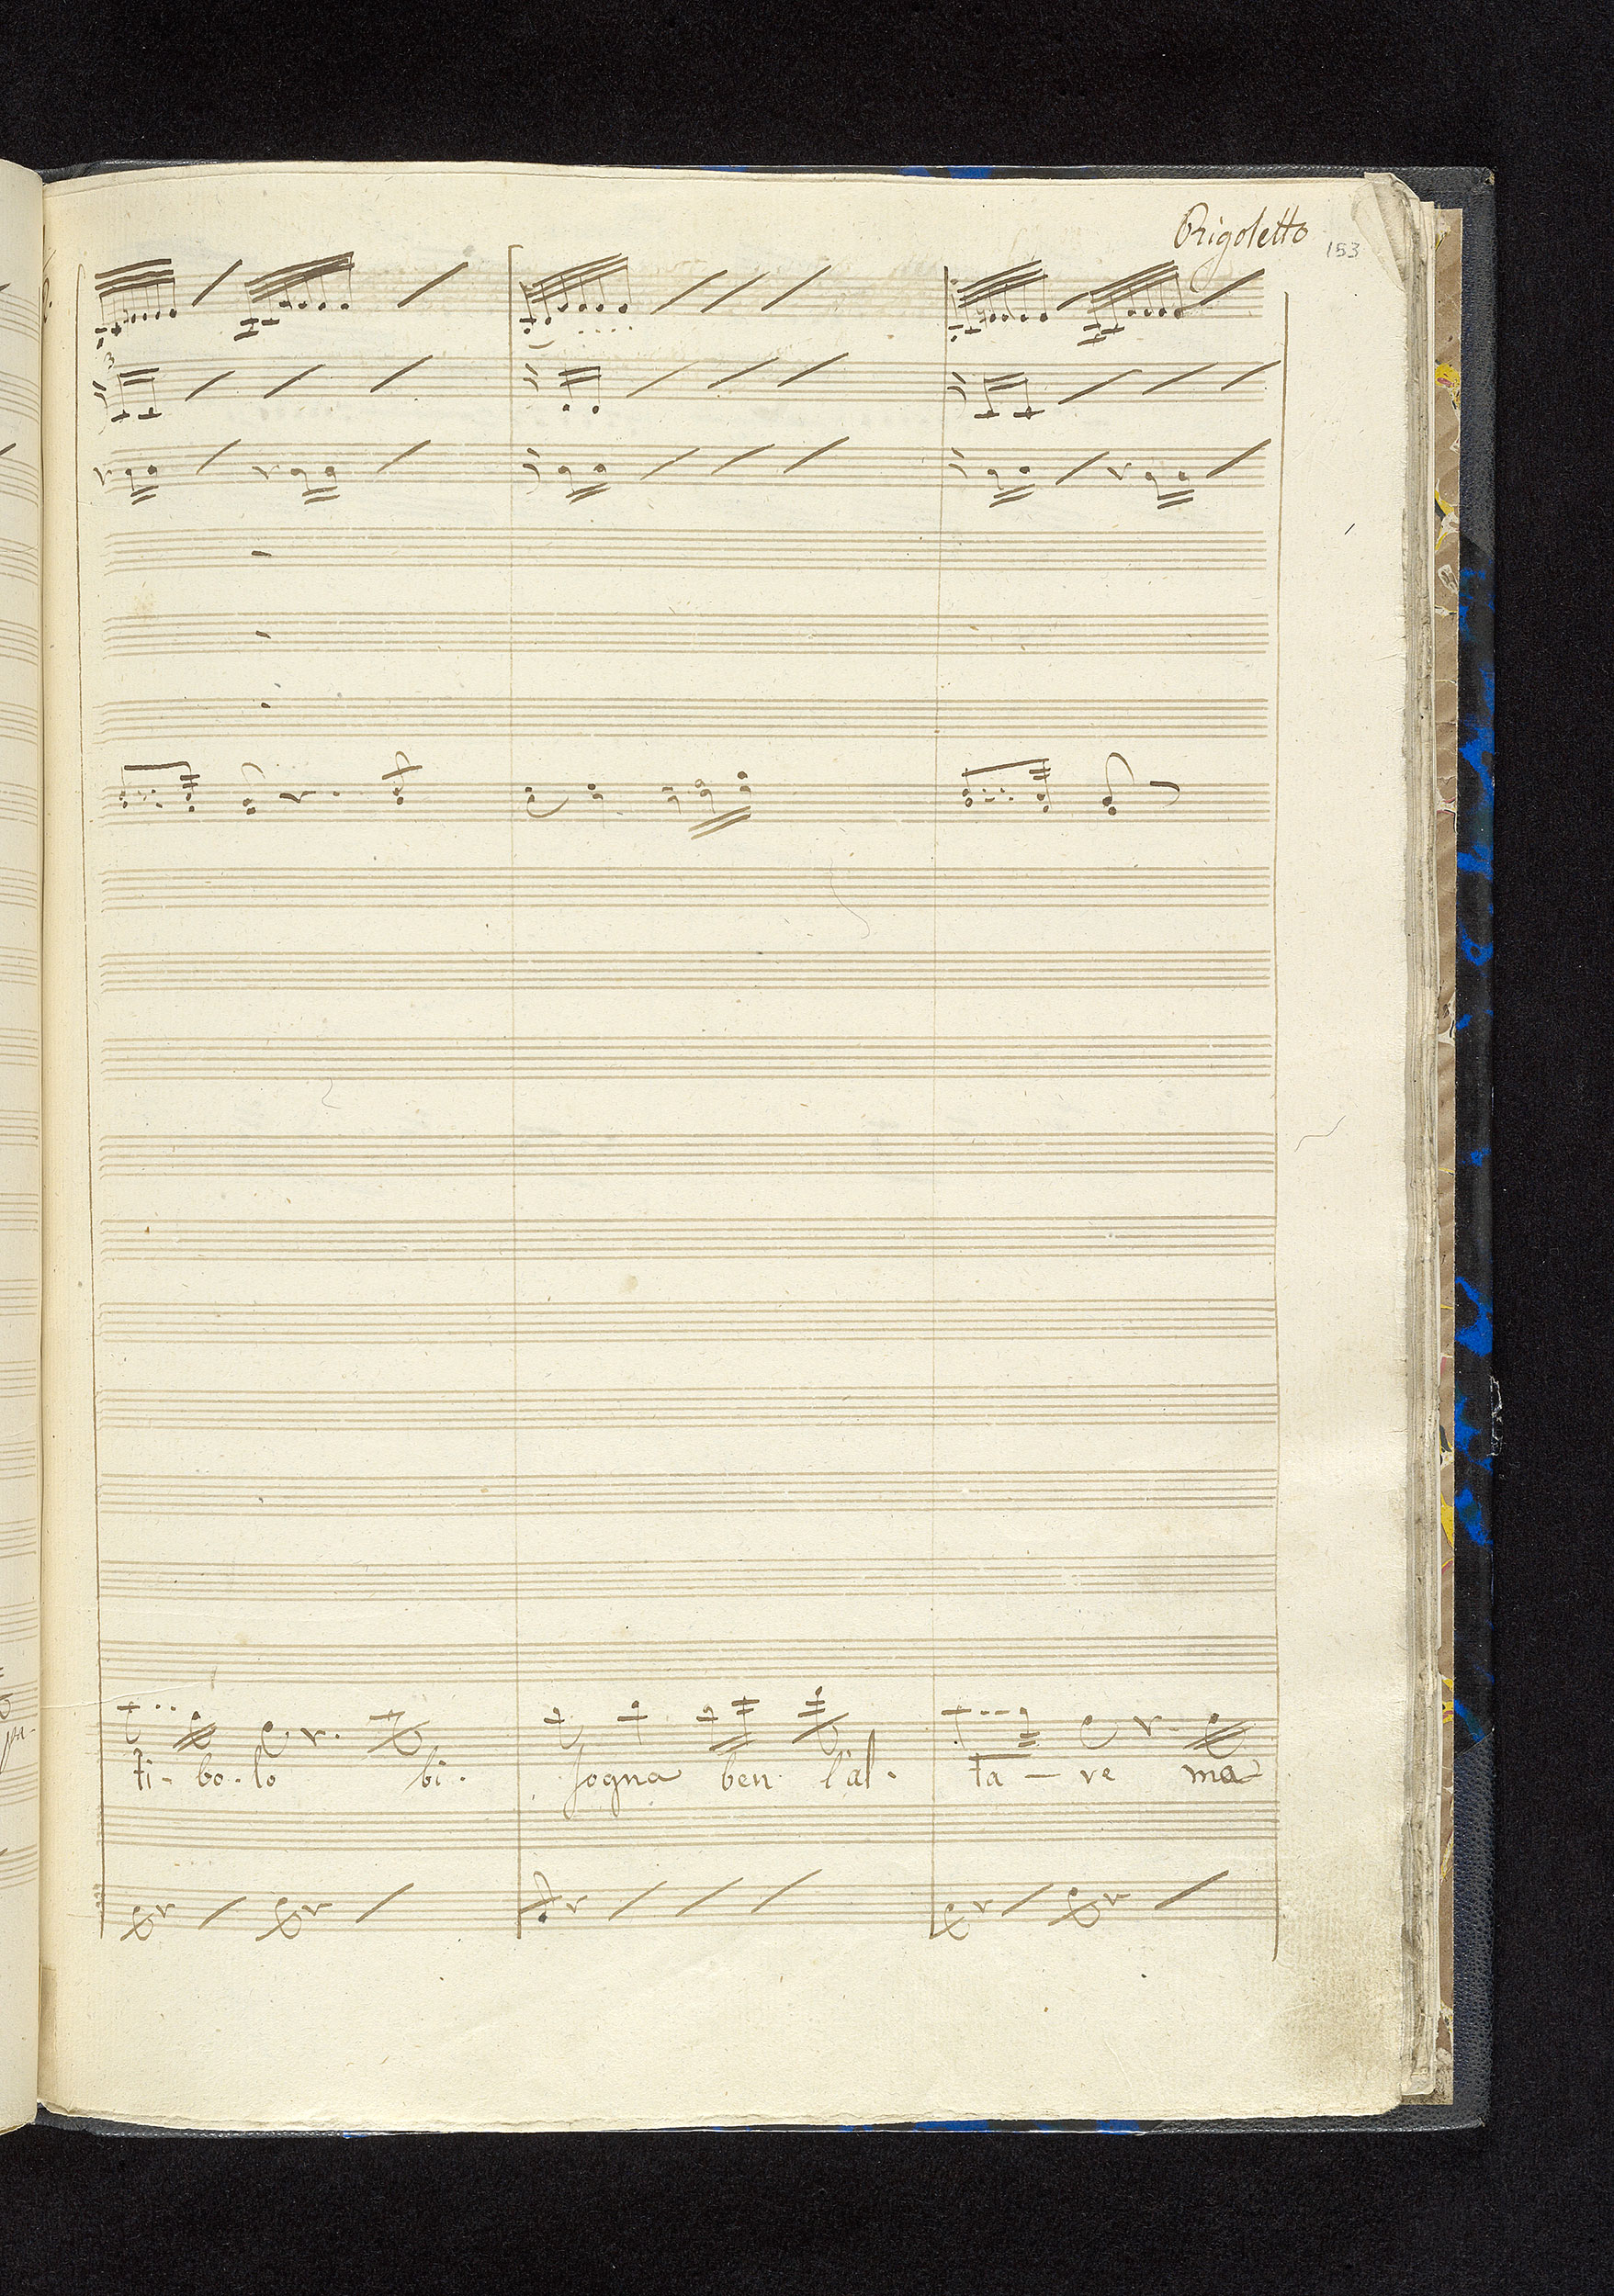 Rigoletto
153
3
ti - bo - lo bi - sogna ben l'al - ta - ve ma